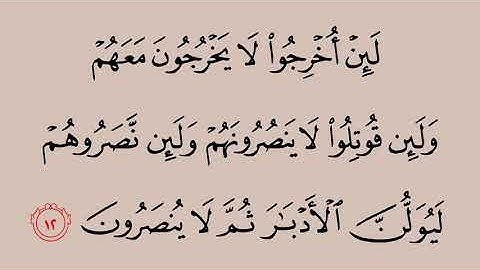 لَئِنۡ أُخۡرِجُواْ لَا يَخۡرُجُونَ مَعَهُمۡ
وَلَئِن قُوتِلُواْ لَا يَنصُرُونَهُمۡ وَلَئِن نَّصَرُوهُمۡ
لَيُوَلُّنَّ ٱلۡأَدۡبَٰرَ ثُمَّ لَا يُنصَرُونَ ١٢